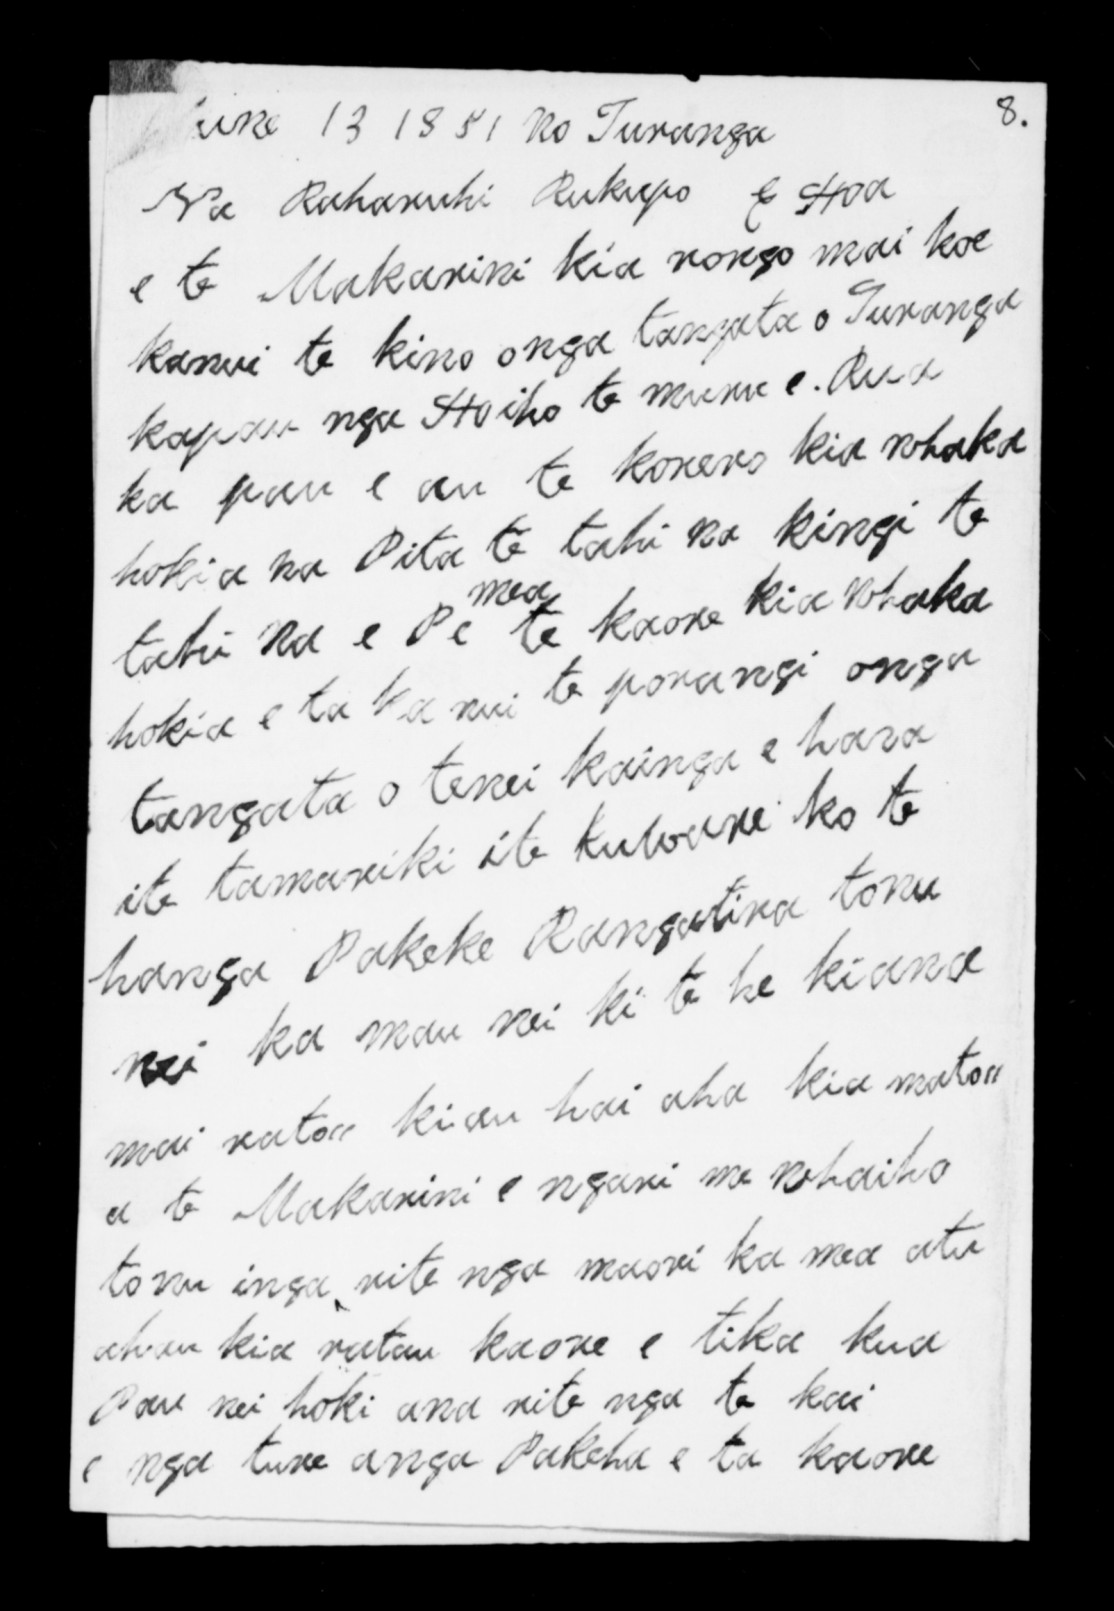 June 13 1851 No Turanga
8.
Na Raharuhi Rukupo E Hoa
e te Makarini kia rongo mai koe
kanui te kino onga tangata o Turanga
kapau nga Hoiho te muru e. Rua
ka pau e au te korero kia whaka
hokia na Pita te tahi na kingi te
tahi na e Pe te kaore kia whaka
mea
hokia e ta ka nui te porangi onga
tangata o tenei kainga e hara
ite tamariki ite kuware ko te
hanga Pakeke Rangatira tonu
nei ka mau nei ki te he kiana
mai ratou kiau hai aha kia matou
a te Makarini e ngari me whaiho
tonu inga rite nga maori ka mea atu
ahau kia ratau kaore e tika kua
Pau nei hoki ana rite nga te kai
e nga ture anga Pakeha e ta kaore